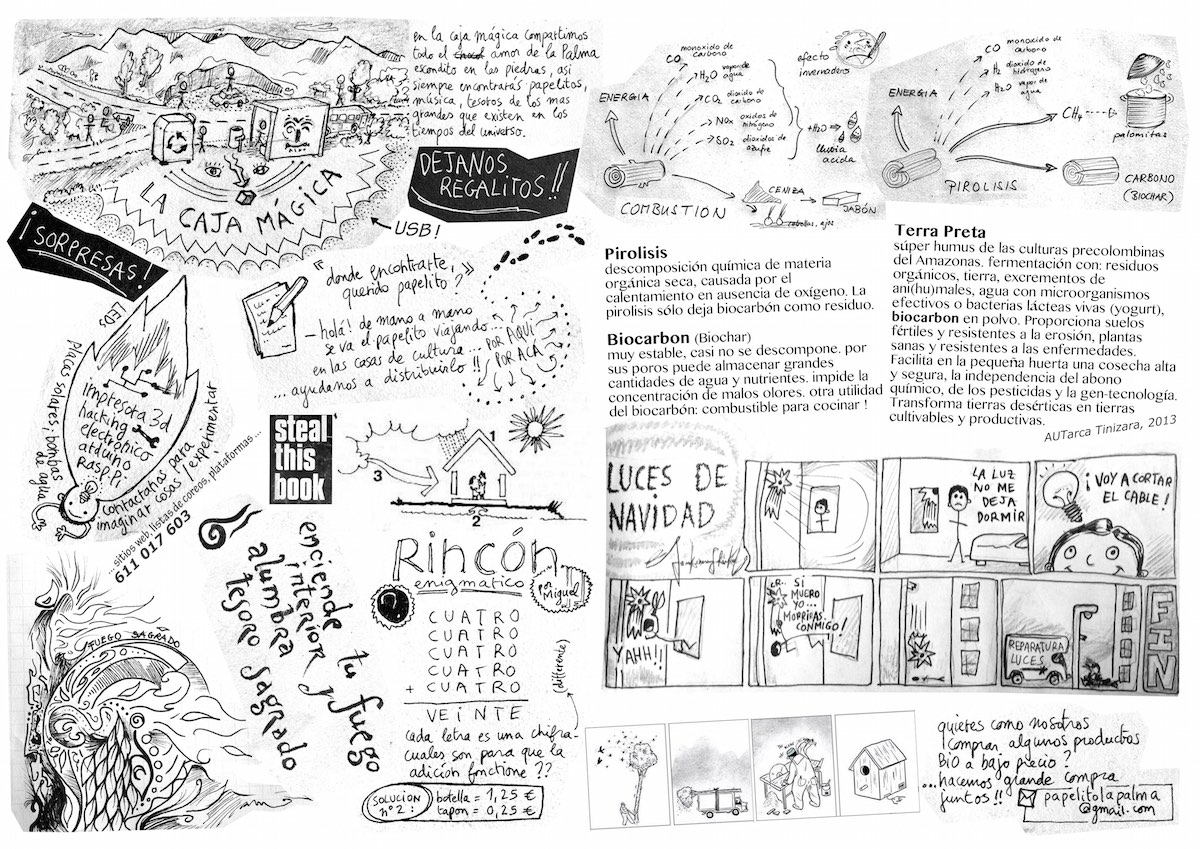 en la caja mágica compartimos
todo el amor de la Palma
escondito en las piedras, asi
siempre encontraras papelitos,
música, tesoros de los mas
grandes que existen en los
tiempos del universo.
DEJANOS
REGALITOS!!
LA CAJA MÁGICA
USB!
¡SORPRESAS!
"donde encontrarte,
querido papelito?"
— hola! de mano a mano
se va el papelito viajando...
en las casas de cultura...
... ayudanos a distribuirlo!!
POR AQUÍ
POR ACA
LEDs
placas solares, bombas
de agua
impresora 3d
hacking
electrónico
arduino
RASP.PI
contactanos para
imaginar cosas y experimentar
...sitios web, listas de correos, plataformas...
611 017 603
steal
this
book
1
2
3
enciende tu fuego
interior y
alumbra tu
tesoro sagrado
FUEGO SAGRADO
Rincón
enigmatico
por Miguel
?
CUATRO
CUATRO
CUATRO
CUATRO
+ CUATRO
VEINTE
cada letra es una chifra
(differente)
cuales son para que la
adicion fonctione ??
SOLUCION
n°2:
botella = 1,25 €
tapon = 0,25 €
ENERGIA
CO monoxido de
carbono
H2O vapor de
agua
CO2 dioxido de
carbono
NOx oxidos de
nitrógeno
SO2 dioxidos de
azufre
efecto
invernadero
+H2O
lluvia
acida
COMBUSTION
CENIZA
JABÓN
ENERGIA
CO monoxido de
carbono
H2 dioxido de
hidrogeno
H2O vapor de
agua
CH4
palomitas
PIROLISIS
CARBONO
(BIOCHAR)
Pirolisis
descomposición química de materia
orgánica seca, causada por el
calentamiento en ausencia de oxígeno. La
pirolisis sólo deja biocarbón como residuo.
Biocarbon (Biochar)
muy estable, casi no se descompone. por
sus poros puede almacenar grandes
cantidades de agua y nutrientes. impide la
concentración de malos olores. otra utilidad
del biocarbón: combustible para cocinar !
Terra Preta
súper humus de las culturas precolombinas
del Amazonas. fermentación con: residuos
orgánicos, tierra, excrementos de
ani(hu)males, agua con microorganismos
efectivos o bacterias lácteas vivas (yogurt),
biocarbon en polvo. Proporciona suelos
fértiles y resistentes a la erosión, plantas
sanas y resistentes a las enfermedades.
Facilita en la pequeña huerta una cosecha alta
y segura, la independencia del abono
químico, de los pesticidas y la gen-tecnología.
Transforma tierras desérticas en tierras
cultivables y productivas.
AUTarca Tinizara, 2013
LUCES DE
NAVIDAD
LA LUZ
NO ME
DEJA
DORMIR
¡VOY A CORTAR
EL CABLE!
YAHH!!
SI
MUERO
YO...
MORIRAS
CONMIGO!
REPARATURA
LUCES
FIN
quieres como nosotros
¡Comprar algunos productos
BiO a bajo precio?
...hacemos grande compra
juntos!!
papelitolapalma
@gmail.com